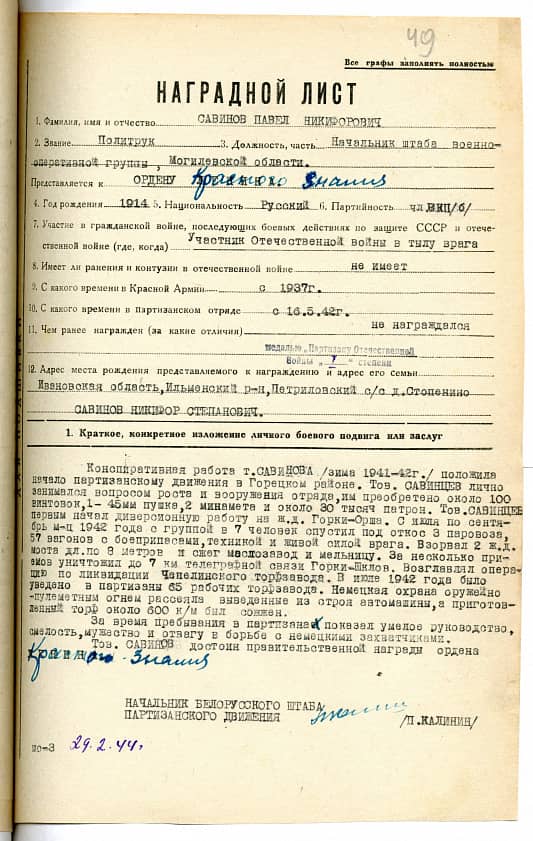 49
Все графы заполнять полностью
НАГРАДНОЙ ЛИСТ
1. Фамилия, имя и отчество САВИНОВ ПАВЕЛ НИКИФОРОВИЧ
2. Звание Политрук 3. Должность, часть Начальник штаба военно-
оперативной группы, Могилевской области.
Представляется к ОРДЕНУ Красного Знамия
4. Год рождения 1914 5. Национальность Русский 6. Партийность чл.ВКП/б/
7. Участие в гражданской войне, последующих боевых действиях по защите СССР и отече-
ственной войне (где, когда) Участник Отечественной войны в тылу врага
8. Имеет ли ранения и контузии в отечественной войне не имеет
9. С какого времени в Красной Армии с 1937г.
10. С какого времени в партизанском отряде с 16.5.42г.
11. Чем ранее награжден (за какие отличия) не награждался
медалью „Партизану Отечественной
Войны „I" степени
12. Адрес места рождения представляемого к награждению и адрес его семьи
Ивановская область,Ильменский р-н,Петриловский с/с д.Стопенино
САВИНОВ НИКИФОР СТЕПАНОВИЧ.
1. Краткое, конкретное изложение личного боевого подвига или заслуг
Конспиративная работа т.САВИНОВА /зима 1941-42г./ положила
начало партизанскому движения в Горецком районе. Тов. САВИНЦЕВ лично
занимался вопросом роста и вооружения отряда,им преобретено около 100
винтовок,1- 45мм пушка,2 минамета и около 30 тысяч патрон. Тов.САВИНЦЕВ
первым начал диверсионную работу на ж.д. Горки-Орша. С июля по сентя-
брь м-ц 1942 года с группой в 7 человек спустил под откос 3 паровоза,
57 вагонов с боеприпасами,техникой и живой силой врага. Взорвал 2 ж.д.
моста дл.по 8 метров и сжег маслозавод и мельницу. За несколько при-
емов уничтожил до 7 км телеграфной связи Горки-Шклов. Возглавлял опера-
цию по ликвидации Чепелинского торфзавода. В июле 1942 года было
уведено в партизаны 65 рабочих торфзавода. Немецкая охрана оружейно
-пулеметным огнем рассеяла выведенные из строя автомашины,а приготов-
ленный торф около 600 к/м был сожжен.
За время пребывания в партизанах показал умелое руководство,
смелость,мужество и отвагу в борьбе с немецкими захватчиками.
Тов. САВИНОВ достоин правительственной награды ордена
Красного Знамия
НАЧАЛЬНИК БЕЛОРУССКОГО ШТАБА
ПАРТИЗАНСКОГО ДВИЖЕНИЯ /П.КАЛИНИН/
мо-3 29.2.44г